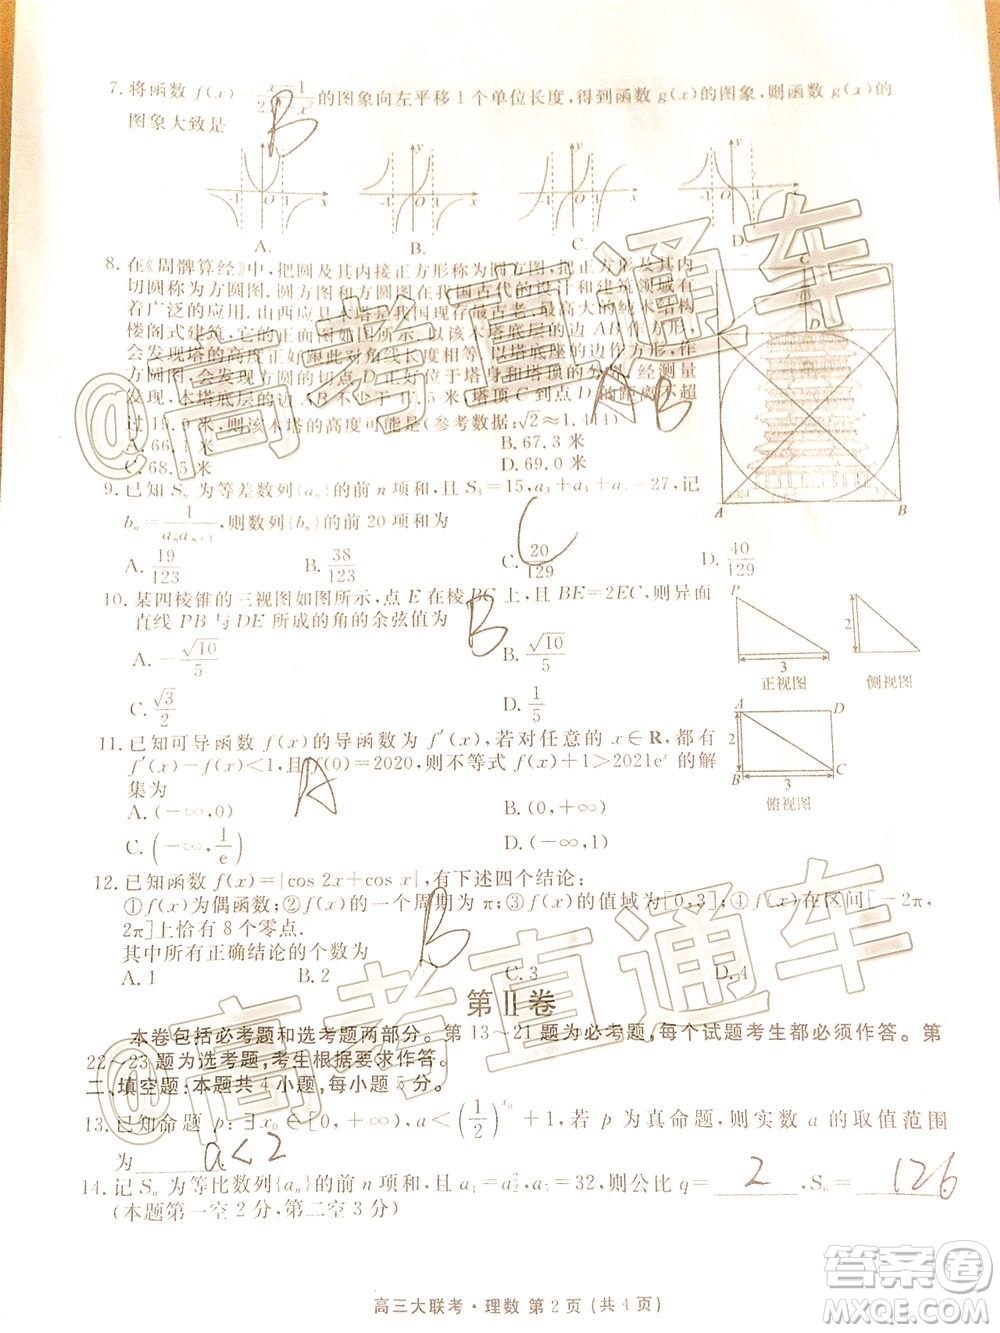 7. 将函数 f(x)=x-1/2x-x²的图象向左平移 1 个单位长度,得到函数 g(x)的图象,则函数 g(x)的
图象大致是
B
y y
-1 O 1 x -1 O 1 x -1 O 1 x -1 O 1 x
A. B. C. D.
8. 在《周髀算经》中,把圆及其内接正方形称为圆方图,把正方形及其内
切圆称为方圆图.圆方图和方圆图在我国古代的设计和建筑领域有
着广泛的应用.山西应县木塔是我国现存最古老、最高大的纯木结构
楼阁式建筑,它的正面图如图所示.以该木塔底层的边 AB 作方形,
会发现塔的高度正好跟此对角线长度一致.以塔底座的边作方形,
方圆图,会发现方圆的切点 D 正好位于塔身和塔顶的分界.经测量
发现,木塔底层的边 不少于 米,塔顶 C 到点 D 的距离不超
过 19.0 米,则该木塔的高度可能是(参考数据:√2≈1.414)
A B
A. 66.1 米 B. 67.3 米
C. 68.5 米 D. 69.0 米
C
D
A B
9. 已知 Sₙ 为等差数列{aₙ}的前 n 项和,且 S₃=15,a₃+a₄+a₅=27,记
bₙ=1/aₙaₙ₊₁,则数列{bₙ}的前 20 项和为
C
A. 19/123 B. 38/123 C. 20/129 D. 40/129
10. 某四棱锥的三视图如图所示,点 E 在棱 BC 上,且 BE=2EC,则异面
直线 PB 与 DE 所成的角的余弦值为
B
A. -√10/5 B. √10/5
C. √3/2 D. 1/5
P 2 3
正视图 侧视图
A D 2 B C 3
俯视图
11. 已知可导函数 f(x)的导函数为 f′(x),若对任意的 x∈R,都有
f′(x)-f(x)<1,且 f(0)=2020,则不等式 f(x)+1>2021eˣ 的解
集为
A
A. (-∞,0) B. (0,+∞)
C. (-∞,1/e) D. (-∞,1)
12. 已知函数 f(x)=|cos 2x+cos x|,有下述四个结论:
①f(x)为偶函数;②f(x)的一个周期为 π;③f(x)的值域为[0,3];④f(x)在区间[-2π,
2π]上恰有 8 个零点.
其中所有正确结论的个数为
B
A. 1 B. 2 C. 3 D. 4
第Ⅱ卷
本卷包括必考题和选考题两部分。第 13~21 题为必考题,每个试题考生都必须作答。第
22~23 题为选考题,考生根据要求作答。
二、填空题:本题共 4 小题,每小题 5 分。
13. 已知命题 p:∃x₀∈[0,+∞),a<(1/2)^x₀+1,若 p 为真命题,则实数 a 的取值范围
为 a<2
14. 记 Sₙ 为等比数列{aₙ}的前 n 项和,且 a₄=a₂²,a₅=32,则公比 q= 2 ,S₆= 126
(本题第一空 2 分,第二空 3 分)
高三大联考·理数 第 2 页 (共 4 页)
@高考直通车
@高考直通车
答案圈
MXQE.COM